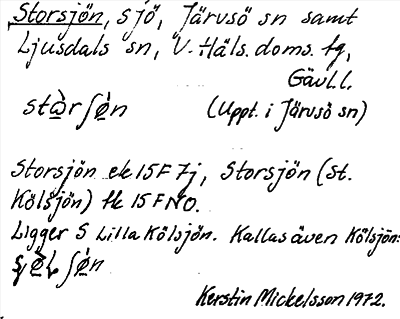 Storsjön, sjö, Järvsö sn samt
Ljusdals sn, V. Häls. doms. tg,
Gävl. l.
(Uppt. i Järvsö sn)
Storsjön ek 15F 7j, Storsjön (St.
Kölsjön) tk 15 F NO.
Ligger S Lilla Kölsjön. Kallas även Kölsjön:
Kerstin Mickelsson 1972.